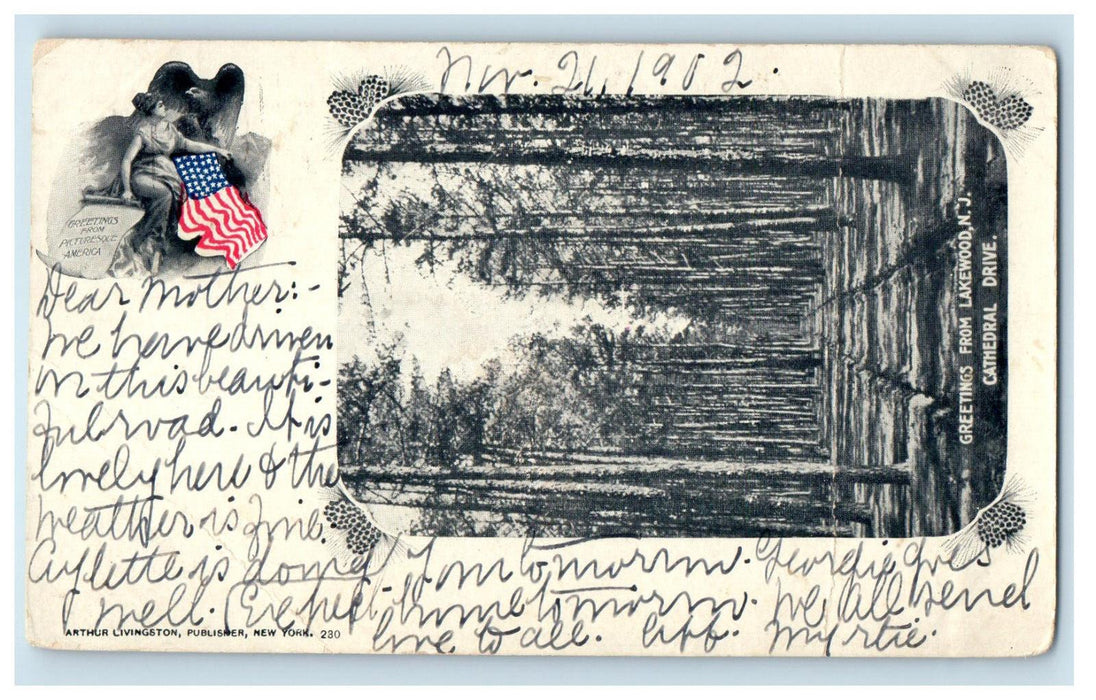 Nov. 21, 1902.
GREETINGS
FROM
PICTURESQUE
AMERICA
GREETINGS FROM LAKEWOOD, N. J.
CATHEDRAL DRIVE.
Dear Mother:-
We have driven
on this beauti-
ful road. It is
lovely here & the
weather is fine.
is doing
well. Expect
home tomorrow. Geordie goes
tomorrow. We all send
love to all. Aff. Myrtie.
ARTHUR LIVINGSTON, PUBLISHER, NEW YORK. 280